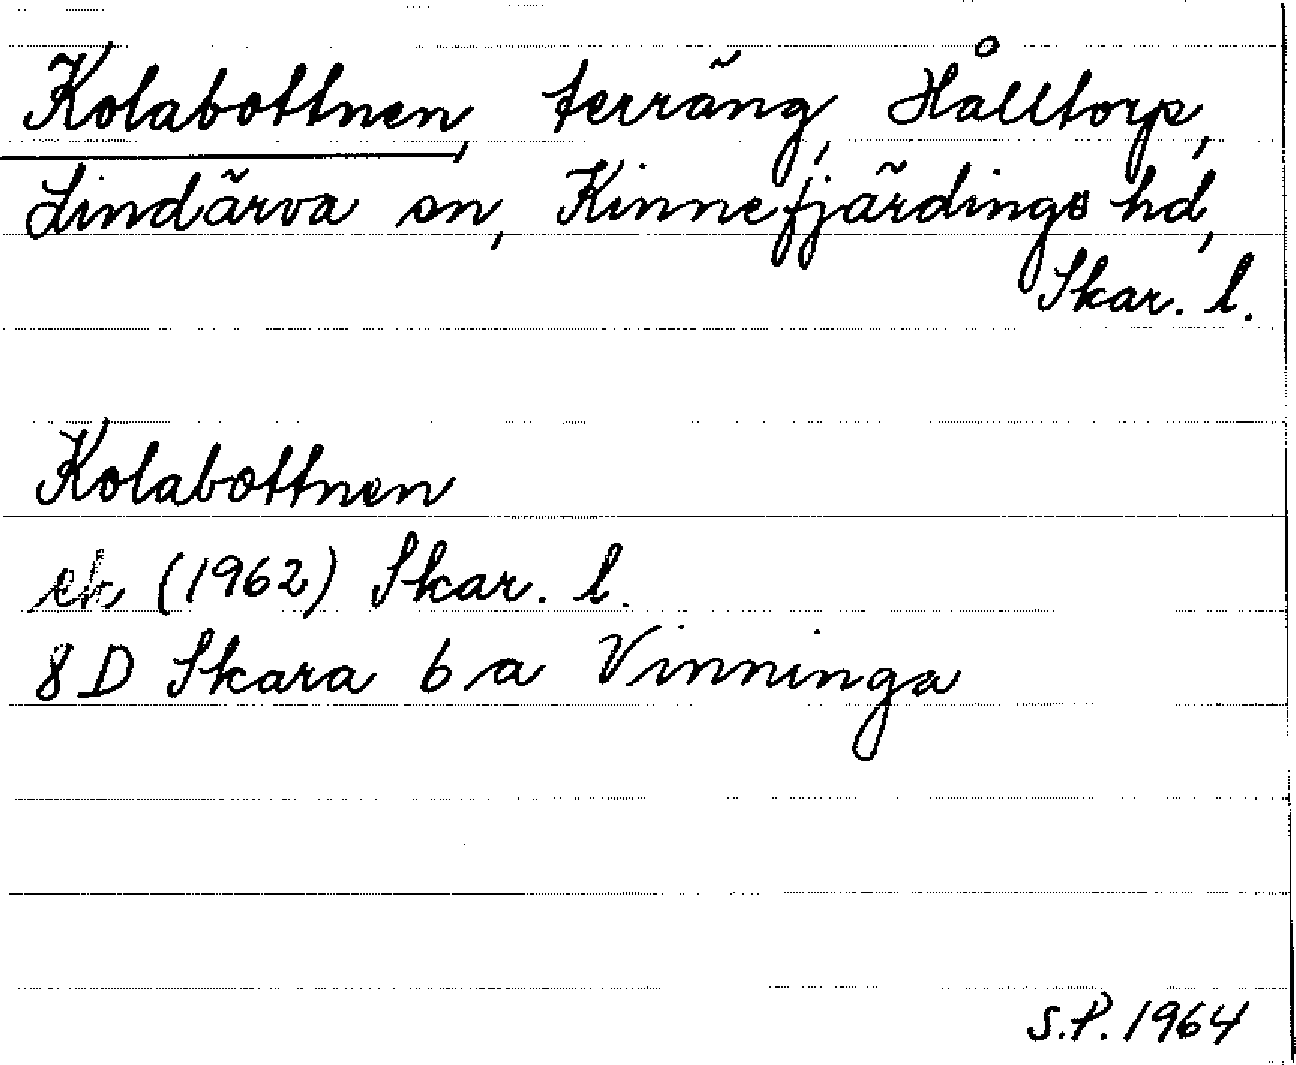 Kolabottnen, terräng, Hålltorp,
Lindärva sn, Kinnefjärdings hd,
Skar. l.
Kolabottnen
ek (1962) Skar. l.
8D Skara 6 a Vinninga
S.P. 1964